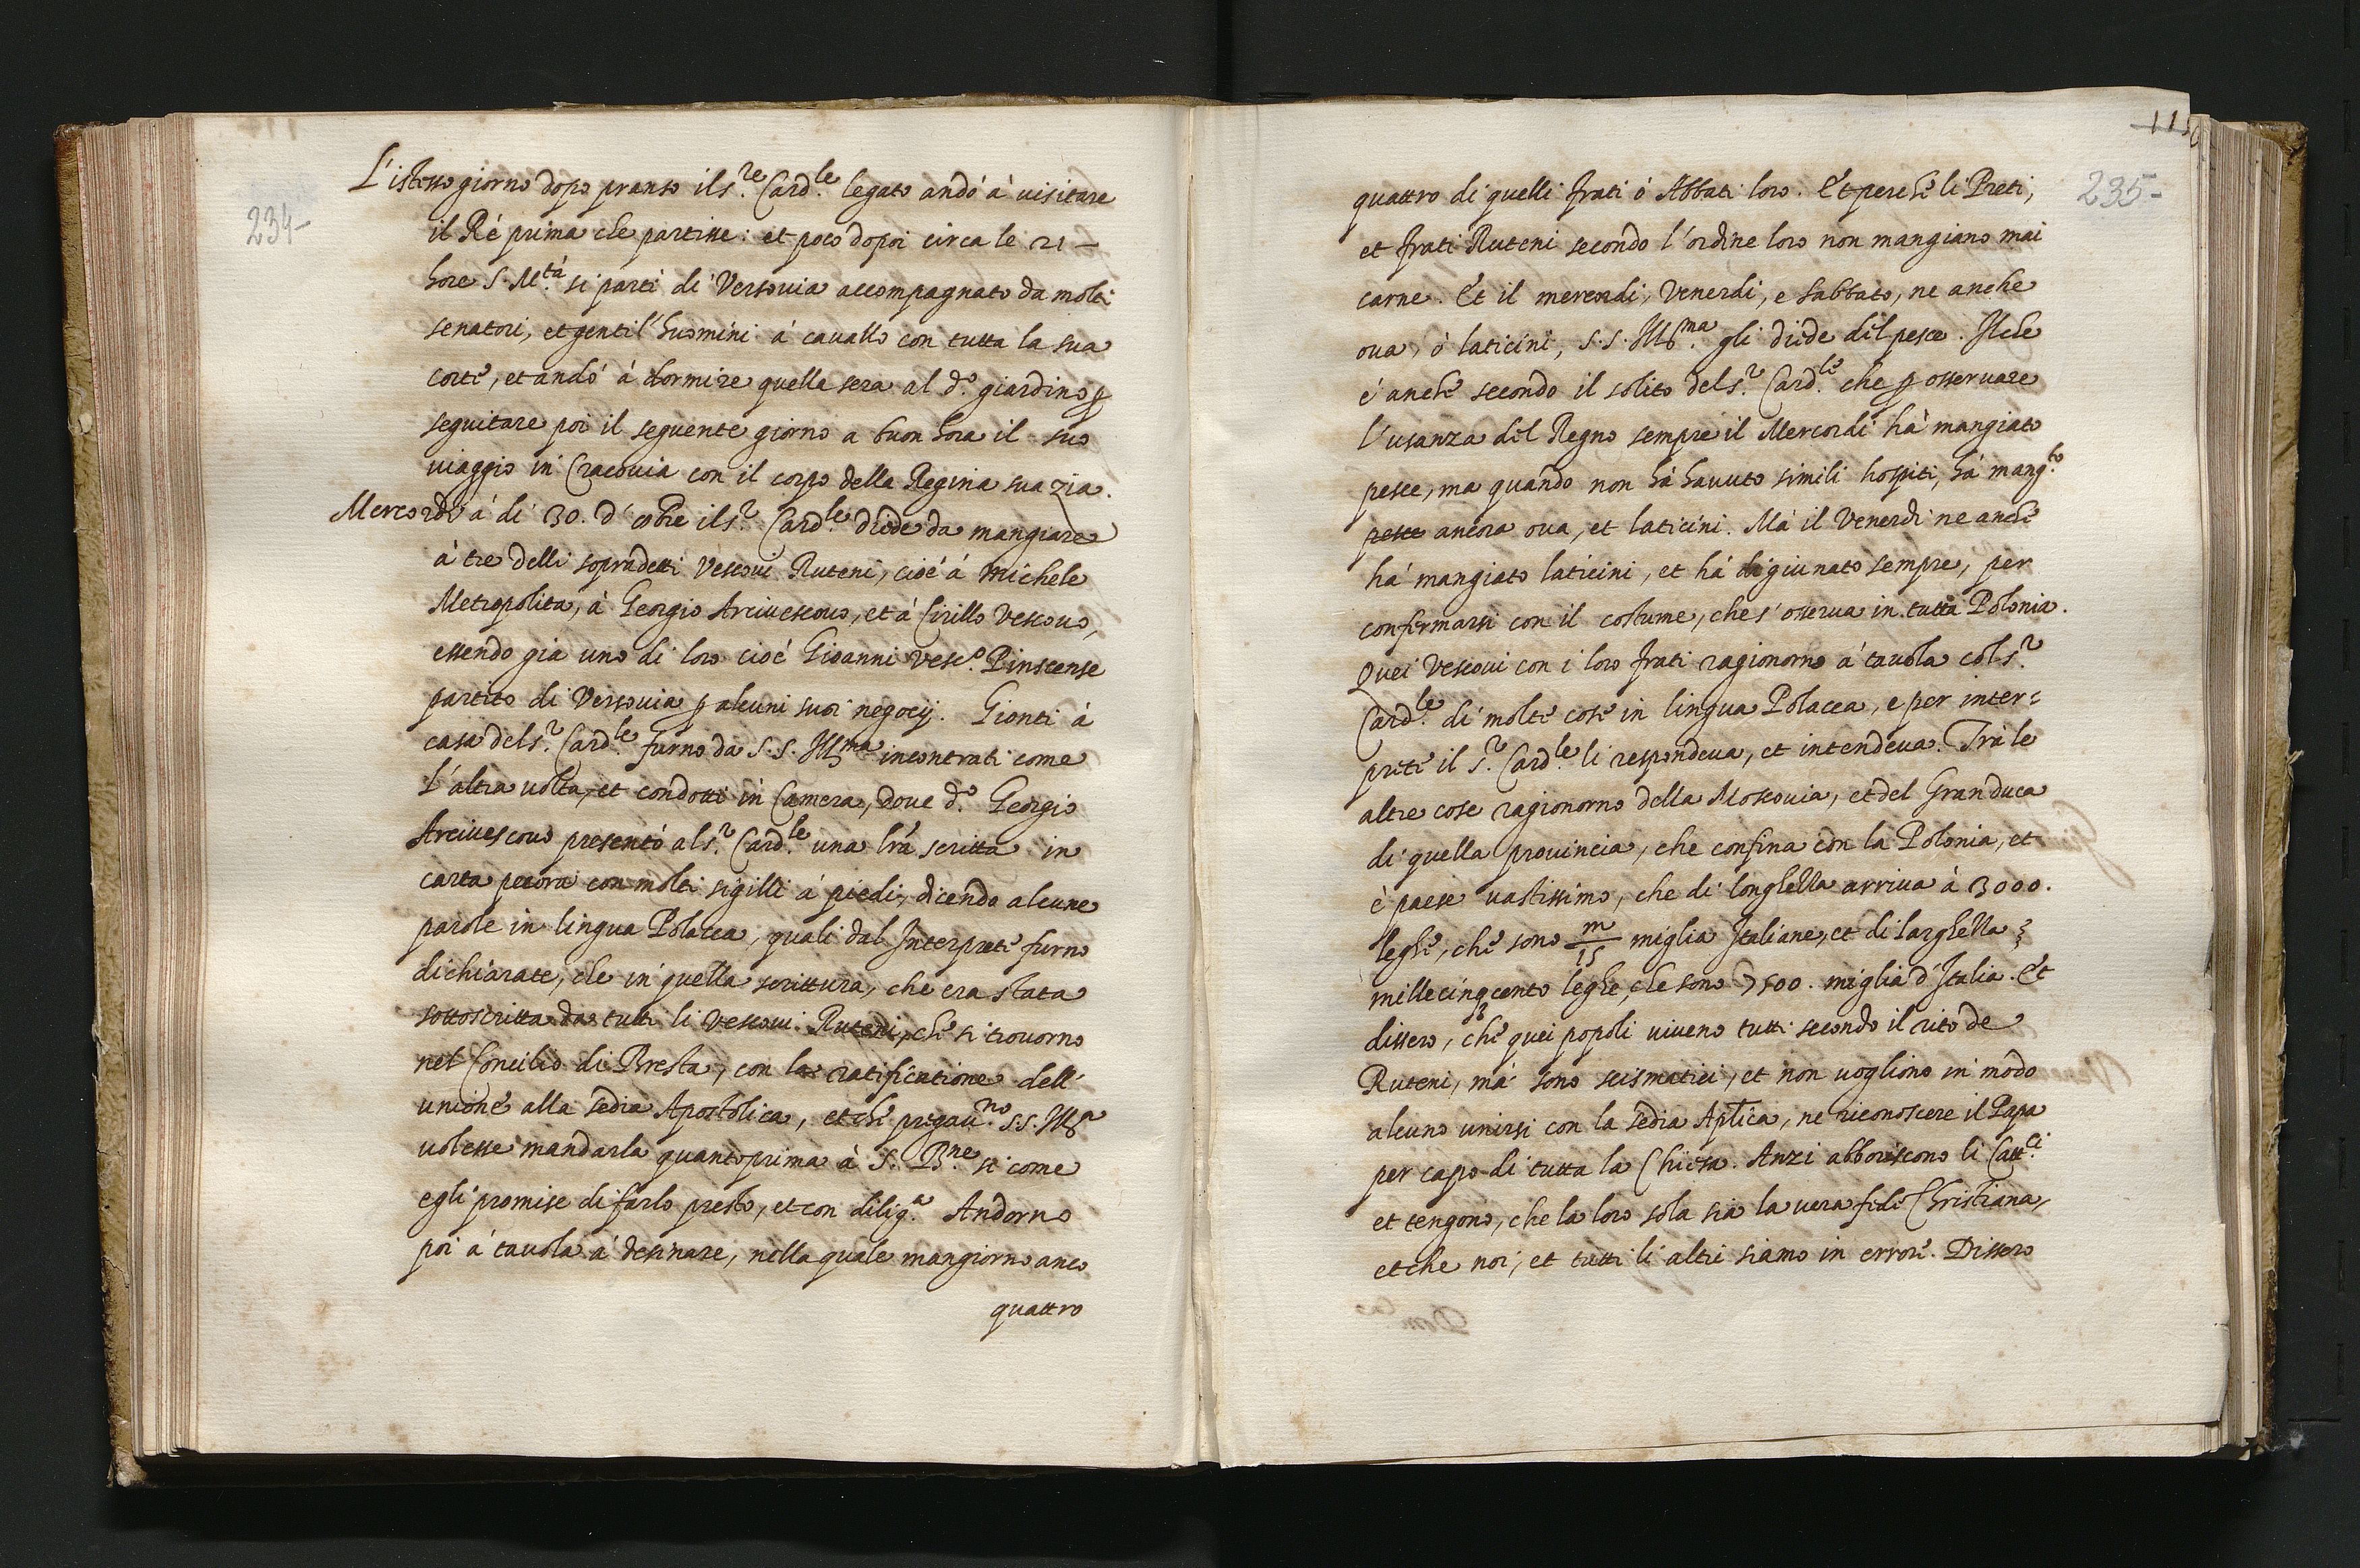 234-
L'istesso giorno dopo pranso il s.re Card.le legato andò à uisitare
il Ré prima che partisse: et poco dopoi circa le 21 -
hore S. M.tà si partì di Versouia accompagnato da molti
senatori, et gentil'huomini à cauallo con tutta la sua
corte, et andò à dormire quella sera al d.o giardino ꝑ
seguitare poi il seguente giorno a buon hora il suo
uiaggio in Cracouia con il corpo della Regina sua zia.
Mercordì à dì 30. d'8bre il s.r Card.le diede da mangiare
à tre delli sopradetti Vescoui Ruteni, cioè à Michele
Metropolita, à Georgio Arciuescouo, et à Cirillo Vescouo,
essendo già uno di loro cioè Gioanni Vesc.o Pinscense
partito di Versouia ꝑ alcuni suoi negocij. Gionti à
casa del s.r Card.le furno da S.S. Ill.ma incontrati come
l'altra uolta, et condotti in Camera, doue d.o Georgio
Arciuescouo presentò al s.r Card.le una lrã scritta in
carta pecora con molti sigilli à piedi, dicendo alcune
parole in lingua Polacca, quali dal Interprete furno
dichiarate, che in quella scrittura, che era stata
sottoscritta da tutti li Vescoui Ruteni, che si trouorno
nel Concilio di Bresta, con la ratificatione dell'
unione alla sedia Apostolica, et che pregau.no S.S. Ill.a
uolesse mandarla quanto prima à S. B.ne si come
egli promise di farlo presto, et con dilig.a Andorno
poi à tauola à desinare, nella quale mangiorno anco
quattro
115
235-
quattro di quelli frati ò Abbati loro. Et perche li Preti,
et frati Ruteni secondo l'ordine loro non mangiano mai
carne. Et il mercordi, Venerdi, e Sabbato, ne anche
oua, ò laticini, S.S. Ill.ma gli diede del pesce. Il che
è anche secondo il solito del s.r Card.le che ꝑ osseruare
l'usanza del Regno sempre il Mercordi hà mangiato
pesce, ma quando non hà hauuto simili hospiti, hà mang.to
pesce ancora oua, et laticini. Mà il Venerdi ne anche
hà mangiato laticini, et hà digiunato sempre, per
confirmarsi con il costume, che s'osserua in tutta Polonia.
Quei Vescoui con i loro frati ragionorno à tauola col s.r
Card.le di molte cose in lingua Polacca, e per inter=
prete il s.r Card.le li respondeua, et intendeua. Trà le
altre cose ragionorno della Moscouia, et del Gran duca
di quella prouincia, che confina con la Polonia, et
è paese uastissimo, che di longhezza arriua à 3000.
leghe, che sono m/15 miglia Italiane, et di larghezza
mille cinqcento leghe, che sono 7500. miglia d'Italia. Et
dissero, che quei popoli uiueno tutti secondo il rito de
Ruteni, mà sono scismatici, et non uogliono in modo
alcuno unirsi con la sedia Aplica, ne riconoscere il Papa
per capo di tutta la Chiesa. Anzi abboriscono li Catt.ci
et tengono, che la loro sola sia la uera fede Christiana,
et che noi, et tutti li altri siamo in errore. Dissero